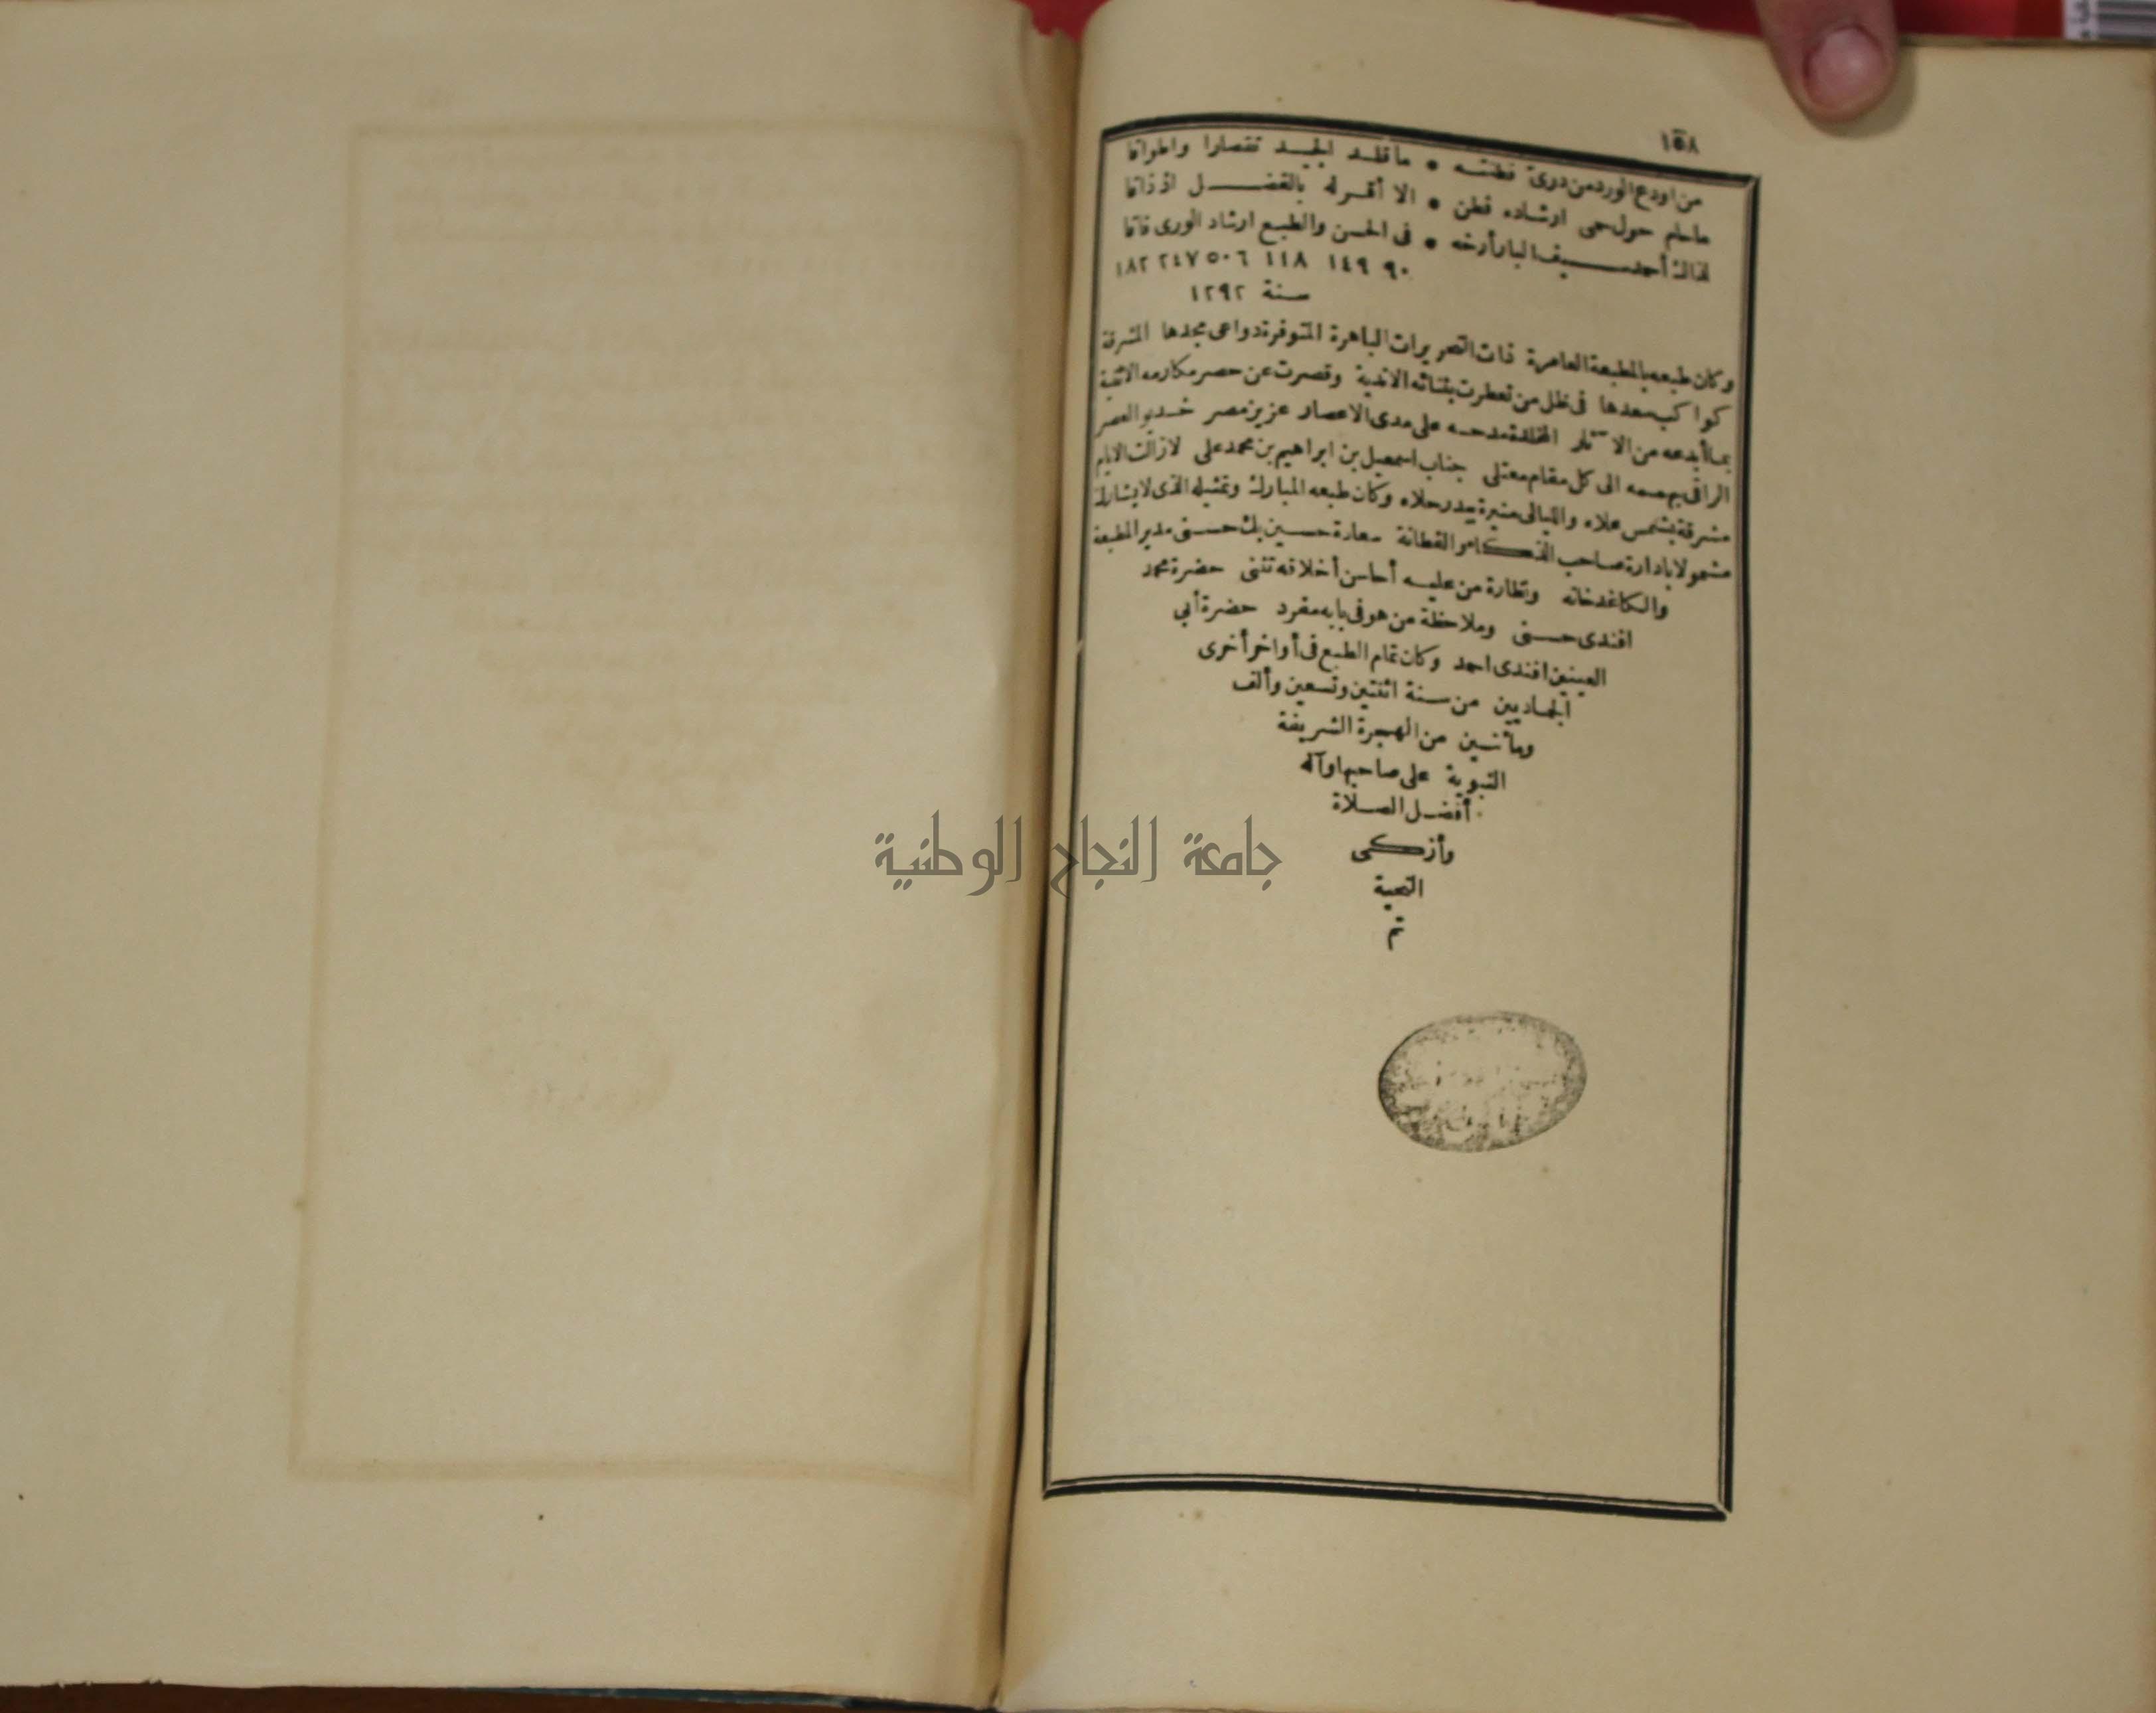 ١٥٨
من اودع الورد من درى فطنته * ما قلد الجيد تقصارا واطواقا
ما حام حول حمى ارشاده فطن * الا أقر له بالفضل اذ ذاقا
لذاك أحمد سيف البار أرخه * فى الحسن والطبع ارشاد الورى فاقا
٩٠ ١٤٩ ١١٨ ٥٠٦ ٢٤٧ ١٨٢
سنة ١٢٩٢
وكان طبعه بالمطبعة العامرة ذات التحريرات الباهرة المتوفرة دواعى مجدها المشرقة
كواكب سعدها فى ظل من تعطرت بثنائه الاندية وقصرت عن حصر مكارمه الاثنية
بما أبدعه من الآثار المخلدة مدحه على مدى الاعصار عزيز مصر خديو العصر
الراقى بهممه الى كل مقام معتلى جناب اسمعيل بن ابراهيم بن محمد على لا زالت الايام
مشرقة بشمس علاه والليالى منيرة ببدر حلاه وكان طبعه المبارك وتمثيله الذى لا يشارك
مشمولا بادارة صاحب الذكاء والفطانة سعادة حسين بك حسنى مدير المطبعة
والكاغدخانه ونظارة من عليه أحاسن أخلاقه تثنى حضرة محمد
افندى حسنى وملاحظة من هو فى بابه مفرد حضرة أبى
العينين افندى احمد وكان تمام الطبع فى أواخر أخرى
الجماديين من سنة اثنتين وتسعين وألف
ومائتين من الهجرة الشريفة
النبوية على صاحبها وآله
أفضل الصلاة
وأزكى
التحية
تم
جامعة النجاح الوطنية